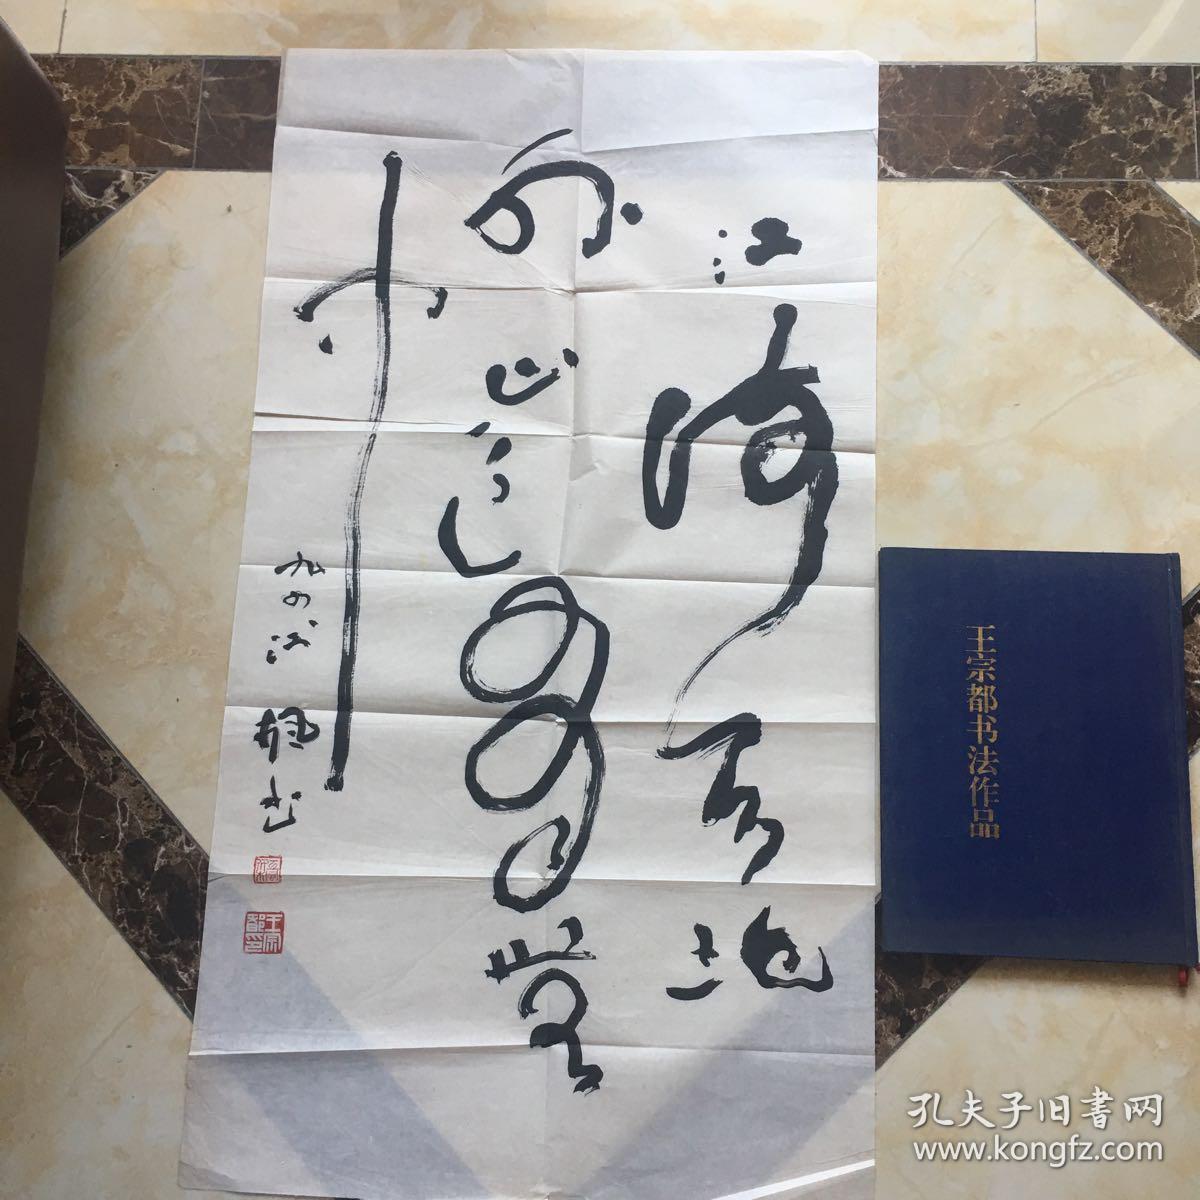 江流天地
外山色有無
中
王宗都印
王宗都书法作品
孔夫子旧書网
www.kongfz.com